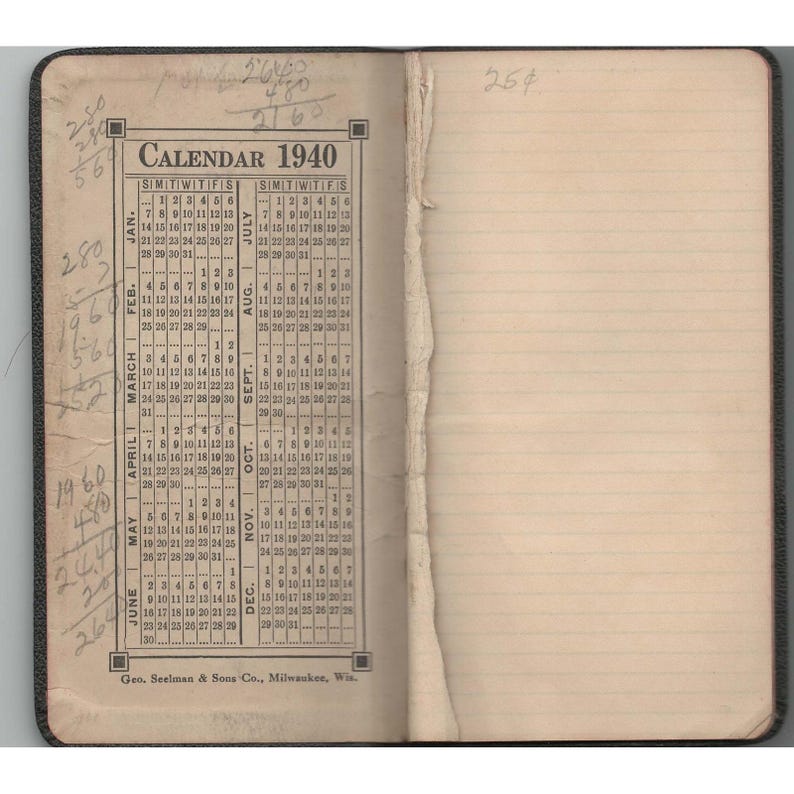 2640
480
2160
280
280
560
280
7
1960
560
2520
1960
480
2440
200
2640
CALENDAR 1940
S M T W T F S
JAN.
... 1 2 3 4 5 6
7 8 9 10 11 12 13
14 15 16 17 18 19 20
21 22 23 24 25 26 27
28 29 30 31 ... ... ...
FEB.
... ... ... ... 1 2 3
4 5 6 7 8 9 10
11 12 13 14 15 16 17
18 19 20 21 22 23 24
25 26 27 28 29 ... ...
MARCH
... ... ... ... ... 1 2
3 4 5 6 7 8 9
10 11 12 13 14 15 16
17 18 19 20 21 22 23
24 25 26 27 28 29 30
31 ... ... ... ... ... ...
APRIL
... 1 2 3 4 5 6
7 8 9 10 11 12 13
14 15 16 17 18 19 20
21 22 23 24 25 26 27
28 29 30 ... ... ... ...
MAY
... ... ... 1 2 3 4
5 6 7 8 9 10 11
12 13 14 15 16 17 18
19 20 21 22 23 24 25
26 27 28 29 30 31 ...
JUNE
... ... ... ... ... ... 1
2 3 4 5 6 7 8
9 10 11 12 13 14 15
16 17 18 19 20 21 22
23 24 25 26 27 28 29
30 ... ... ... ... ... ...
S M T W T F S
JULY
... 1 2 3 4 5 6
7 8 9 10 11 12 13
14 15 16 17 18 19 20
21 22 23 24 25 26 27
28 29 30 31 ... ... ...
AUG.
... ... ... ... 1 2 3
4 5 6 7 8 9 10
11 12 13 14 15 16 17
18 19 20 21 22 23 24
25 26 27 28 29 30 31
SEPT.
1 2 3 4 5 6 7
8 9 10 11 12 13 14
15 16 17 18 19 20 21
22 23 24 25 26 27 28
29 30 ... ... ... ... ...
OCT.
... ... 1 2 3 4 5
6 7 8 9 10 11 12
13 14 15 16 17 18 19
20 21 22 23 24 25 26
27 28 29 30 31 ... ...
NOV.
... ... ... ... ... 1 2
3 4 5 6 7 8 9
10 11 12 13 14 15 16
17 18 19 20 21 22 23
24 25 26 27 28 29 30
DEC.
1 2 3 4 5 6 7
8 9 10 11 12 13 14
15 16 17 18 19 20 21
22 23 24 25 26 27 28
29 30 31 ... ... ... ...
Geo. Seelman & Sons Co., Milwaukee, Wis.
25¢